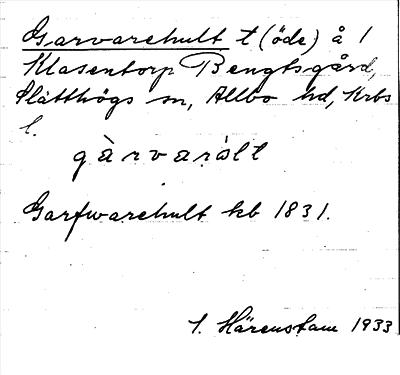 Garvarehult t (öde) å 1
Klasentorp Bengtsgård,
Slätthögs sn, Allbo hd, Krbs
l.
gàrvarált
Garfwarehult kb 1831.
S. Härenstam 1933